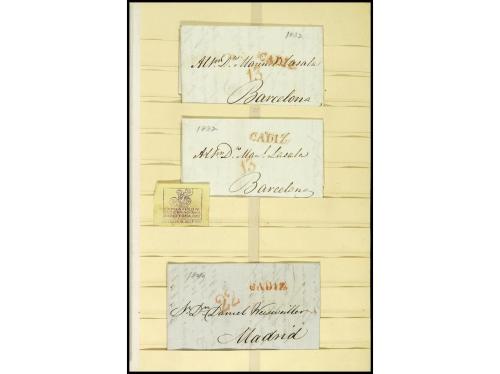 1832
CADIZ
Al Sr. Dn. Manuel Lasala
13
Barcelona
1832
CADIZ
Al Sr. Dn. Manl. Lasala
13
Barcelona
CADIZ
Sr. Dn. Daniel Weisweiller
Madrid